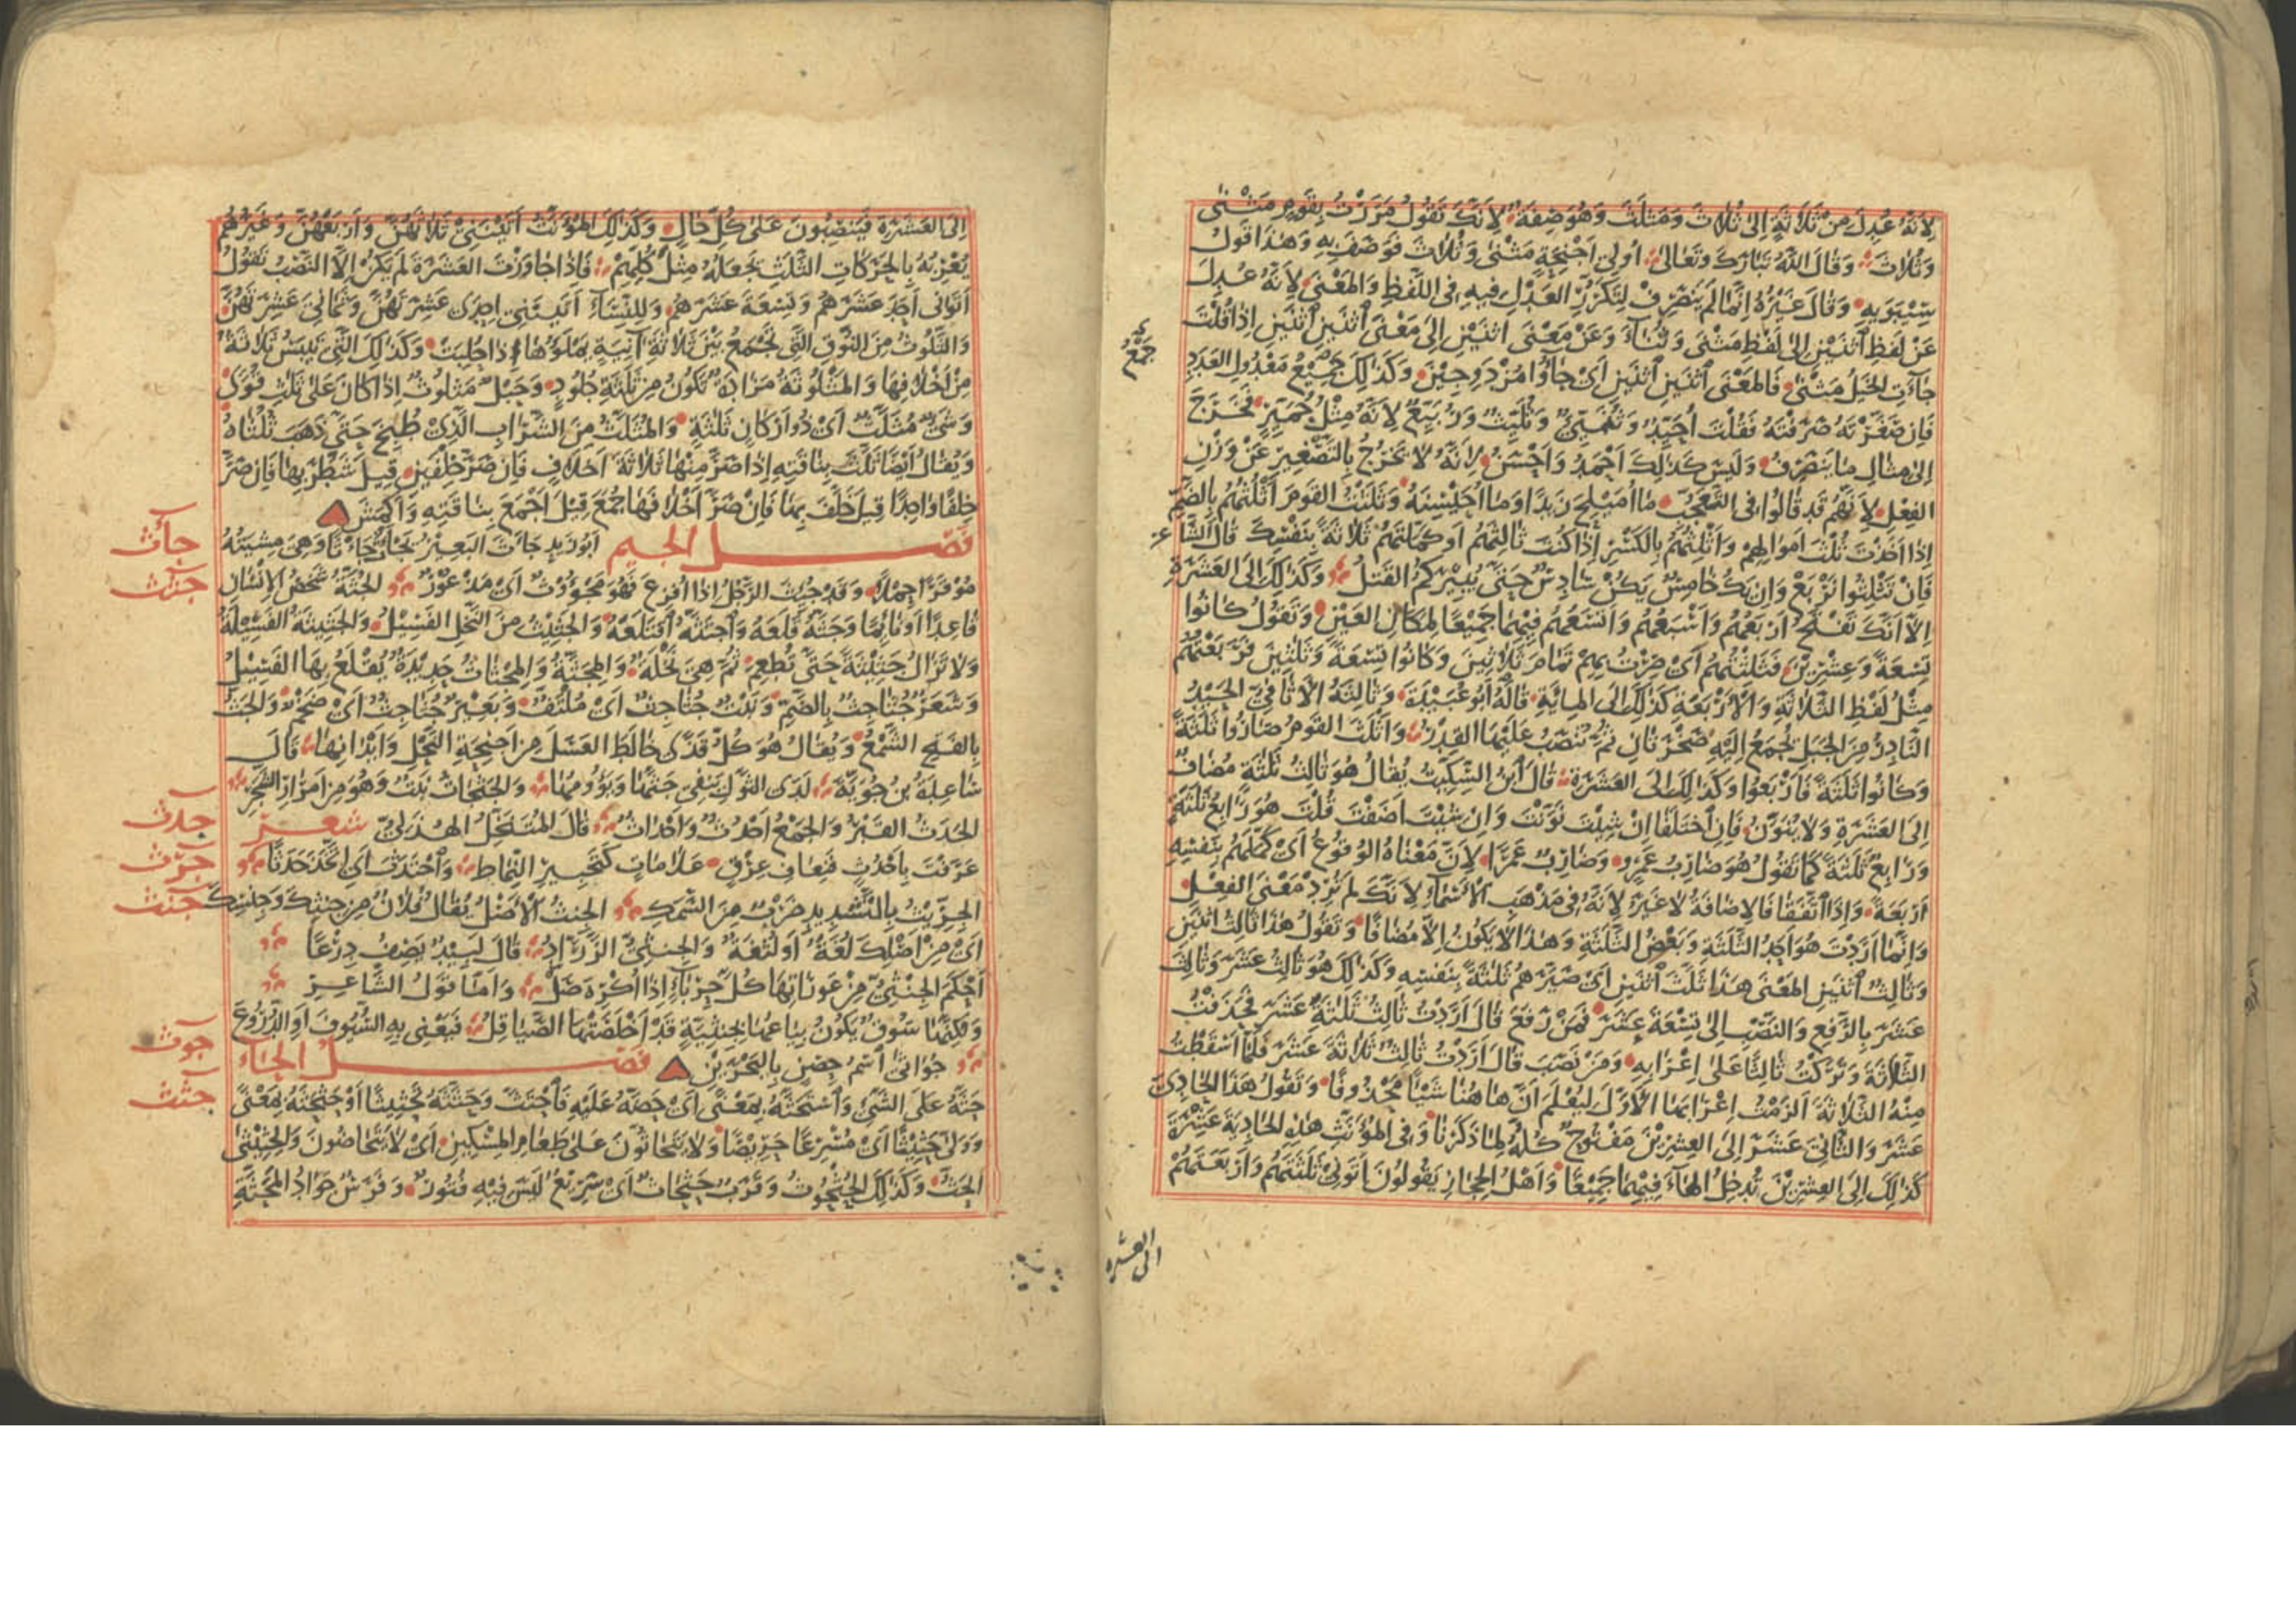 لِاَنَّهُ عُدِلَ مِنْ ثَلَاثَةٍ اِلَى ثُلَاثَ وَمَثْلَثَ وَهُوَ صِفَةٌ لِاَنَّكَ تَقُولُ مَرَرْتُ بِقَوْمٍ مَثْنَى
وَثُلَاثَ وَقَالَ اللّٰهُ تَبَارَكَ وَتَعَالَى اُولِي اَجْنِحَةٍ مَثْنَى وَثُلَاثَ فَوَصَفَ بِهِ وَهٰذَا قَوْلُ
سِيْبَوَيْهِ وَقَالَ غَيْرُهُ اِنَّمَا لَمْ يَنْصَرِفْ لِتَكَرُّرِ الْعَدْلِ فِيهِ فِي اللَّفْظِ وَالْمَعْنَى لِاَنَّهُ عُدِلَ
عَنْ لَفْظِ اثْنَيْنِ اِلَى لَفْظِ مَثْنَى وَثُنَاءَ وَعَنْ مَعْنَى اثْنَيْنِ اِلَى مَعْنَى اثْنَيْنِ اثْنَيْنِ اِذَا قُلْتَ
جَاءَتِ الْخَيْلُ مَثْنَى فَالْمَعْنَى اثْنَيْنِ اثْنَيْنِ اَيْ جَاؤُا مُزْدَوِجِيْنَ وَكَذٰلِكَ جَمِيْعُ مَعْدُولِ الْعَدَدِ
فَاِنْ صَغَّرْتَهُ صَرَفْتَهُ فَقُلْتَ اُحَيِّدٌ وَثُنَيٌّ وَثُلَيِّثٌ وَرُبَيِّعٌ لِاَنَّهُ مِثْلُ حُمَيِّرٍ فَخَرَجَ
اِلَى مِثَالِ مَا يَنْصَرِفُ وَلَيْسَ كَذٰلِكَ اَحْمَدُ وَاَحْسَنُ لِاَنَّهُ لَا يَخْرُجُ بِالتَّصْغِيرِ عَنْ وَزْنِ
الْفِعْلِ لِاَنَّهُمْ قَدْ قَالُوا فِي التَّعَجُّبِ مَا اُمَيْلِحَ زَيْدًا وَمَا اُحَيْسِنَهُ وَثَلَثْتُ الْقَوْمَ اَثْلُثُهُمْ بِالضَّمِّ
اِذَا اَخَذْتَ ثُلُثَ اَمْوَالِهِمْ وَاَثْلِثُهُمْ بِالْكَسْرِ اِذَا كُنْتَ ثَالِثَهُمْ اَوْ كَمَّلْتَهُمْ ثَلَاثَةً بِنَفْسِكَ قَالَ الشَّاعِر
فَاِنْ تَثْلِثُوا نَرْبَعْ وَاِنْ يَكُ خَامِسٌ يَكُنْ سَادِسٌ حَتَّى يُبِيْرَكُمُ الْقَتْلُ وَكَذٰلِكَ اِلَى الْعَشَرَةِ
اِلَّا اَنَّكَ تَفْتَحُ اَرْبَعُهُمْ وَاَسْبَعُهُمْ وَاَتْسَعُهُمْ فِيْهِمَا جَمِيْعًا لِمَكَانِ الْعَيْنِ وَتَقُولُ كَانُوا
تِسْعَةً وَعِشْرِيْنَ فَثَلَثْتُهُمْ اَيْ صِرْتُ بِهِمْ تَمَامَ ثَلَاثِيْنَ وَكَانُوا تِسْعَةً وَثَلٰثِيْنَ فَرَبَعْتُهُمْ
مِثْلُ لَفْظِ الثَّلَاثَةِ وَالْاَرْبَعَةِ كَذٰلِكَ اِلَى الْمِايَةِ قَالَهُ اَبُو عُبَيْدَةَ وَثَالِثَةُ الْاَثَافِيِّ الْحَيْدُ
النَّادِرُ مِنَ الْجَبَلِ يُجْمَعُ اِلَيْهِ صَخْرَتَانِ ثُمَّ تُنْصَبُ عَلَيْهَا الْقِدْرُ وَاَثْلَثَ الْقَوْمُ صَارُوا ثَلٰثَةً
وَكَانُوا ثَلٰثَةً فَاَرْبَعُوا وَكَذٰلِكَ اِلَى الْعَشَرَةِ قَالَ ابْنُ السِّكِّيْتِ يُقَالُ هُوَ ثَالِثُ ثَلٰثَةٍ مُضَافٌ
اِلَى الْعَشَرَةِ وَلَا يُنَوَّنُ فَاِنِ اخْتَلَفَا اِنْ شِئْتَ نَوَّنْتَ وَاِنْ شِئْتَ اَضَفْتَ قُلْتَ هُوَ رَابِعُ ثَلٰثَةٍ
وَرَابِعٌ ثَلٰثَةً كَمَا تَقُولُ هُوَ ضَارِبُ عَمْرٍو وَضَارِبٌ عَمْرًا لِاَنَّ مَعْنَاهُ الْوُقُوعُ اَيْ كَمَّلَهُمْ بِنَفْسِهِ
اَرْبَعَةً وَاِذَا اتَّفَقَا فَالْاِضَافَةُ لَا غَيْرُ لِاَنَّهُ فِي مَذْهَبِ الْاَسْمَاءِ لِاَنَّكَ لَمْ تُرِدْ مَعْنَى الْفِعْلِ
وَاِنَّمَا اَرَدْتَ هُوَ اَحَدُ الثَّلٰثَةِ وَبَعْضُ الثَّلٰثَةِ وَهٰذَا لَا يَكُونُ اِلَّا مُضَافًا وَتَقُولُ هٰذَا ثَالِثُ اثْنَيْنِ
وَثَالِثٌ اثْنَيْنِ الْمَعْنَى هٰذَا ثَلَثَ اثْنَيْنِ اَيْ صَيَّرَهُمْ ثَلٰثَةً بِنَفْسِهِ وَكَذٰلِكَ هُوَ ثَالِثُ عَشَرَ وَثَالِثَ
عَشَرَ بِالرَّفْعِ وَالنَّصْبِ اِلَى تِسْعَةَ عَشَرَ فَمَنْ رَفَعَ قَالَ اَرَدْتُ ثَالِثُ ثَلٰثَةَ عَشَرَ فَحَذَفْتُ
الثَّلَاثَةَ وَتَرَكْتُ ثَالِثًا عَلَى اِعْرَابِهِ وَمَنْ نَصَبَ قَالَ اَرَدْتُ ثَالِثُ ثَلَاثَةَ عَشَرَ فَلَمَّا اَسْقَطْتُ
مِنْهُ الثَّلَاثَةَ اَلْزَمْتُ اِعْرَابَهَا الْاَوَّلَ لِيُعْلَمَ اَنَّ هَا هُنَا شَيْئًا مَحْذُوفًا وَتَقُولُ هٰذَا الْحَادِيَ
عَشَرَ وَالثَّانِيَ عَشَرَ اِلَى الْعِشْرِيْنَ مَفْتُوحٌ كُلُّهُ لِمَا ذَكَرْنَا وَفِي الْمُؤَنَّثِ هٰذِهِ الْحَادِيَةَ عَشْرَةَ
كَذٰلِكَ اِلَى الْعِشْرِيْنَ تُدْخِلُ الْهَاءَ فِيْهِمَا جَمِيْعًا وَاَهْلُ الْحِجَازِ يَقُولُونَ اَتَوْنِي ثَلٰثَتَهُمْ وَاَرْبَعَتَهُمْ
الى العشره
اِلَى الْعَشَرَةِ فَيَنْصِبُونَ عَلَى كُلِّ حَالٍ وَكَذٰلِكَ الْمُؤَنَّثُ اَتَيْنَنِي ثَلَاثَهُنَّ وَاَرْبَعَهُنَّ وَغَيْرُهُمْ
يُعْرِبُهُ بِالْحَرَكَاتِ الثَّلٰثِ يَجْعَلُهُ مِثْلَ كُلِّهِمْ فَاِذَا جَاوَزْتَ الْعَشَرَةَ لَمْ يَكُنْ اِلَّا النَّصْبُ تَقُولُ
اَتَوْانِي اَحَدَ عَشَرَهُمْ وَتِسْعَةَ عَشَرَهُمْ وَلِلنِّسَاءِ اَتَيْنَنِي اِحْدَى عَشْرَتَهُنَّ وَثَمَانِيَ عَشْرَتَهُنَّ
وَالثَّلُوثُ مِنَ النُّوقِ الَّتِي تَجْمَعُ بَيْنَ ثَلَاثَةِ آنِيَةٍ تَمْلَؤُهَا اِذَا حُلِبَتْ وَكَذٰلِكَ الَّتِي تَيْبَسُ ثَلَاثَةٌ
مِنْ اَخْلَافِهَا وَالْمَثْلُوثَةُ مَزَادَةٌ تَكُونُ مِنْ ثَلٰثَةِ جُلُودٍ وَحَبْلٌ مَثْلُوثٌ اِذَا كَانَ عَلَى ثَلٰثِ قُوًى
وَشَيْءٌ مُثَلَّثٌ اَيْ ذُو اَرْكَانٍ ثَلٰثَةٍ وَالْمُثَلَّثُ مِنَ الشَّرَابِ الَّذِيْ طُبِخَ حَتَّى ذَهَبَ ثُلُثَاهُ
وَيُقَالُ اَيْضًا ثَلَّثَ بِنَاقَتِهِ اِذَا صَرَّ مِنْهَا ثَلَاثَةَ اَخْلَافٍ فَاِنْ صَرَّ خِلْفَيْنِ قِيْلَ شَطَّرَ بِهَا فَاِنْ صَرَّ
خِلْفًا وَاحِدًا قِيْلَ خَلَّفَ بِهَا فَاِنْ صَرَّ اَخْلَافَهَا جُمَعَ قِيْلَ اَجْمَعَ بِنَاقَتِهِ وَاَكْمَشَ
فصل الجيم اَبُو زَيْدٍ جَاَثَ الْبَعِيرُ يَجْاَثُ جَاْثًا وَهِيَ مِشْيَتُهُ
جأث
مُوْقَرًا حِمْلًا وَقَدْ جُئِثَ الرَّجُلُ اِذَا اُفْزِعَ فَهُوَ مَجْؤُوْثٌ اَيْ مَذْعُوْرٌ الْجُثَّةُ شَخْصُ الْاِنْسَانِ
جثث
قَاعِدًا اَوْ نَائِمًا وَجَثَّهُ قَلَعَهُ وَاجْتَثَّهُ اقْتَلَعَهُ وَالْجَثِيْثُ مِنَ النَّخْلِ الْفَسِيْلُ وَالْجَثِيْثَةُ الْفَسِيْلَةُ
وَلَا تَزَالُ جَثِيْثَةً حَتَّى تُطْعِمَ ثُمَّ هِيَ نَخْلَةٌ وَالْمِجَثَّةُ وَالْمِجْثَاثُ حَدِيْدَةٌ يُقْلَعُ بِهَا الْفَسِيْلُ
وَشَعَرٌ جُثَاجِثٌ بِالضَّمِّ وَنَبْتٌ جُثَاجِثٌ اَيْ مُلْتَفٌّ وَبَعِيْرٌ جُثَاجِثٌ اَيْ ضَخْمٌ وَالْجَثُّ
بِالْفَتْحِ الشَّمْعُ وَيُقَالُ هُوَ كُلُّ قَذًى خَالَطَ الْعَسَلَ مِنْ اَجْنِحَةِ النَّحْلِ وَاَبْدَانِهَا قَالَ
سَاعِدَةُ بْنُ جُوَيَّةَ لَدَى الثَّوْلِ يَنْفِي جَثَّهَا وَيَؤُومُهَا وَالْجَثْجَاثُ نَبْتٌ وَهُوَ مِنْ اَمْرَارِ الشَّجَرِ
الْجَدَثُ الْقَبْرُ وَالْجَمْعُ اَجْدُثٌ وَاَجْدَاثٌ قَالَ الْمُتَنَخِّلُ الْهُذَلِيُّ شعر
جدث
عَرَفْتُ بِاَجْدُثٍ فَنِعَافِ عِرْقٍ عَلَامَاتٍ كَتَحْبِيرِ النِّمَاطِ وَاجْتَدَثَ اَيِ اتَّخَذَ جَدَثًا
جرث
الْجِرِّيْثُ بِالتَّشْدِيدِ ضَرْبٌ مِنَ السَّمَكِ الْجِنْثُ الْاَصْلُ يُقَالُ فُلَانٌ مِنْ جِنْثِكَ وَجِنْسِكَ
جنث
اَيْ مِنْ اَصْلِكَ لُغَةٌ اَوْ لُثْغَةٌ وَالْجُنْثِيُّ الزَّرَّادُ قَالَ لَبِيْدٌ يَصِفُ دِرْعًا
اَحْكَمَ الْجُنْثِيُّ مِنْ عَوْرَاتِهَا كُلَّ حِرْبَاءٍ اِذَا اُكْرِهَ صَلَّ وَاَمَّا قَوْلُ الشَّاعِرِ
وَلٰكِنَّهَا سُوْقٌ يَكُونُ بِيَاعُهَا بِجُنْثِيَّةٍ قَدْ اَخْلَصَتْهَا الصَّيَاقِلُ فَيَعْنِي بِهِ السُّيُوفَ اَوِ الدُّرُوعَ
جُوَاثَى اسْمُ حِصْنٍ بِالْبَحْرَيْنِ فصل الحاء
جوث
حَثَّهُ عَلَى الشَّيْءِ وَاسْتَحَثَّهُ بِمَعْنًى اَيْ حَضَّهُ عَلَيْهِ فَاحْتَثَّ وَحَثَّثَهُ تَحْثِيْثًا وَحَثْحَثَهُ بِمَعْنًى
حثث
وَوَلَّى حَثِيْثًا اَيْ مُسْرِعًا حَرِيْصًا وَلَا يَتَحَاثُّونَ عَلَى طَعَامِ الْمِسْكِيْنِ اَيْ لَا يَتَحَاضُّونَ وَالْحِثِّيْثَى
الْحَثُّ وَكَذٰلِكَ الْحُثْحُوثُ وَقَرَبٌ حَثْحَاثٌ اَيْ سَرِيْعٌ لَيْسَ فِيْهِ فُتُورٌ وَفَرَسٌ جَوَادُ الْمَحَثَّةِ